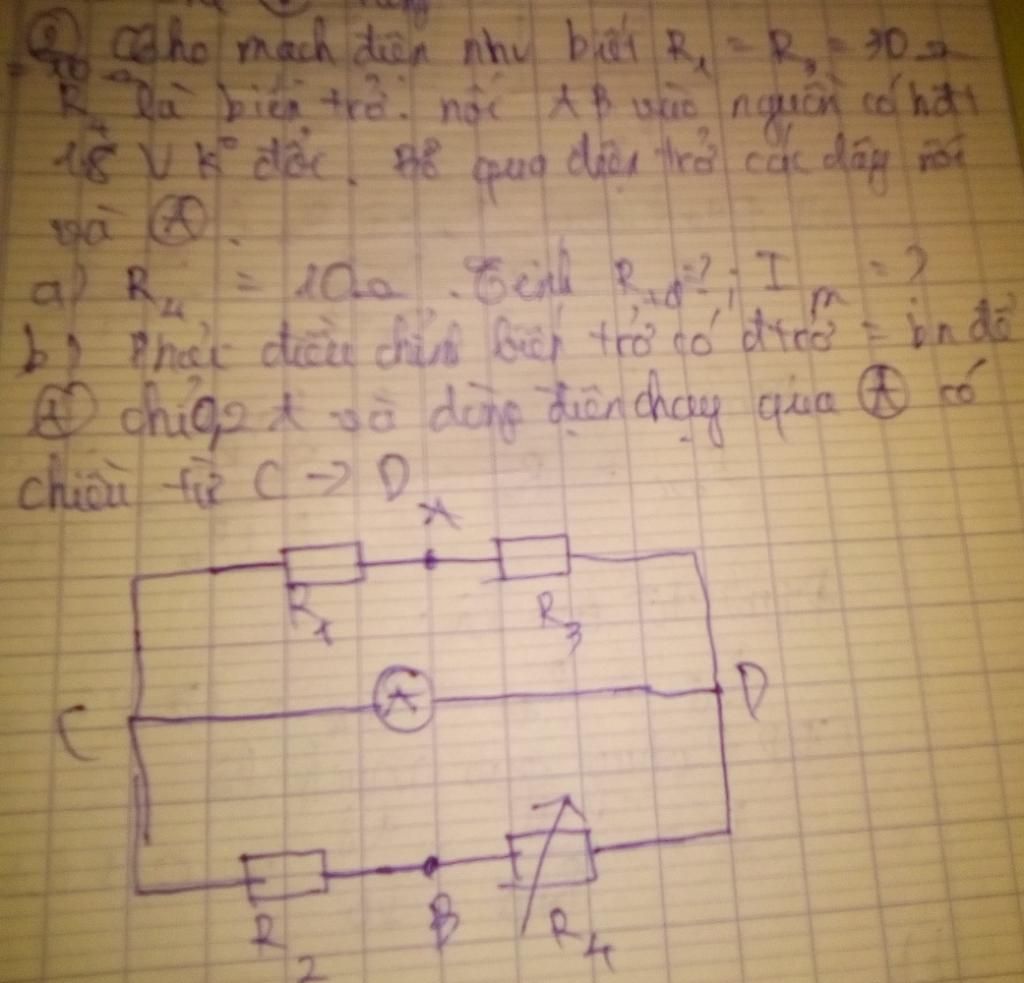 Cho mạch điện như biết R₁ = R₃ = 30 Ω
R₄ là biến trở. nối AB vào nguồn có hđt
18 V k° đổi. Bỏ qua điện trở các dây nối
và Ⓐ.
a) R₄ = 10Ω. Tính R_AB = ?; I_m = ?
b) Phải điều chỉnh biến trở có đtrở = bn để
Ⓐ chỉ 0,2 A và dòng điện chạy qua Ⓐ có
chiều từ C → D
A
R₁
R₃
C
A
D
B
R₂
R₄